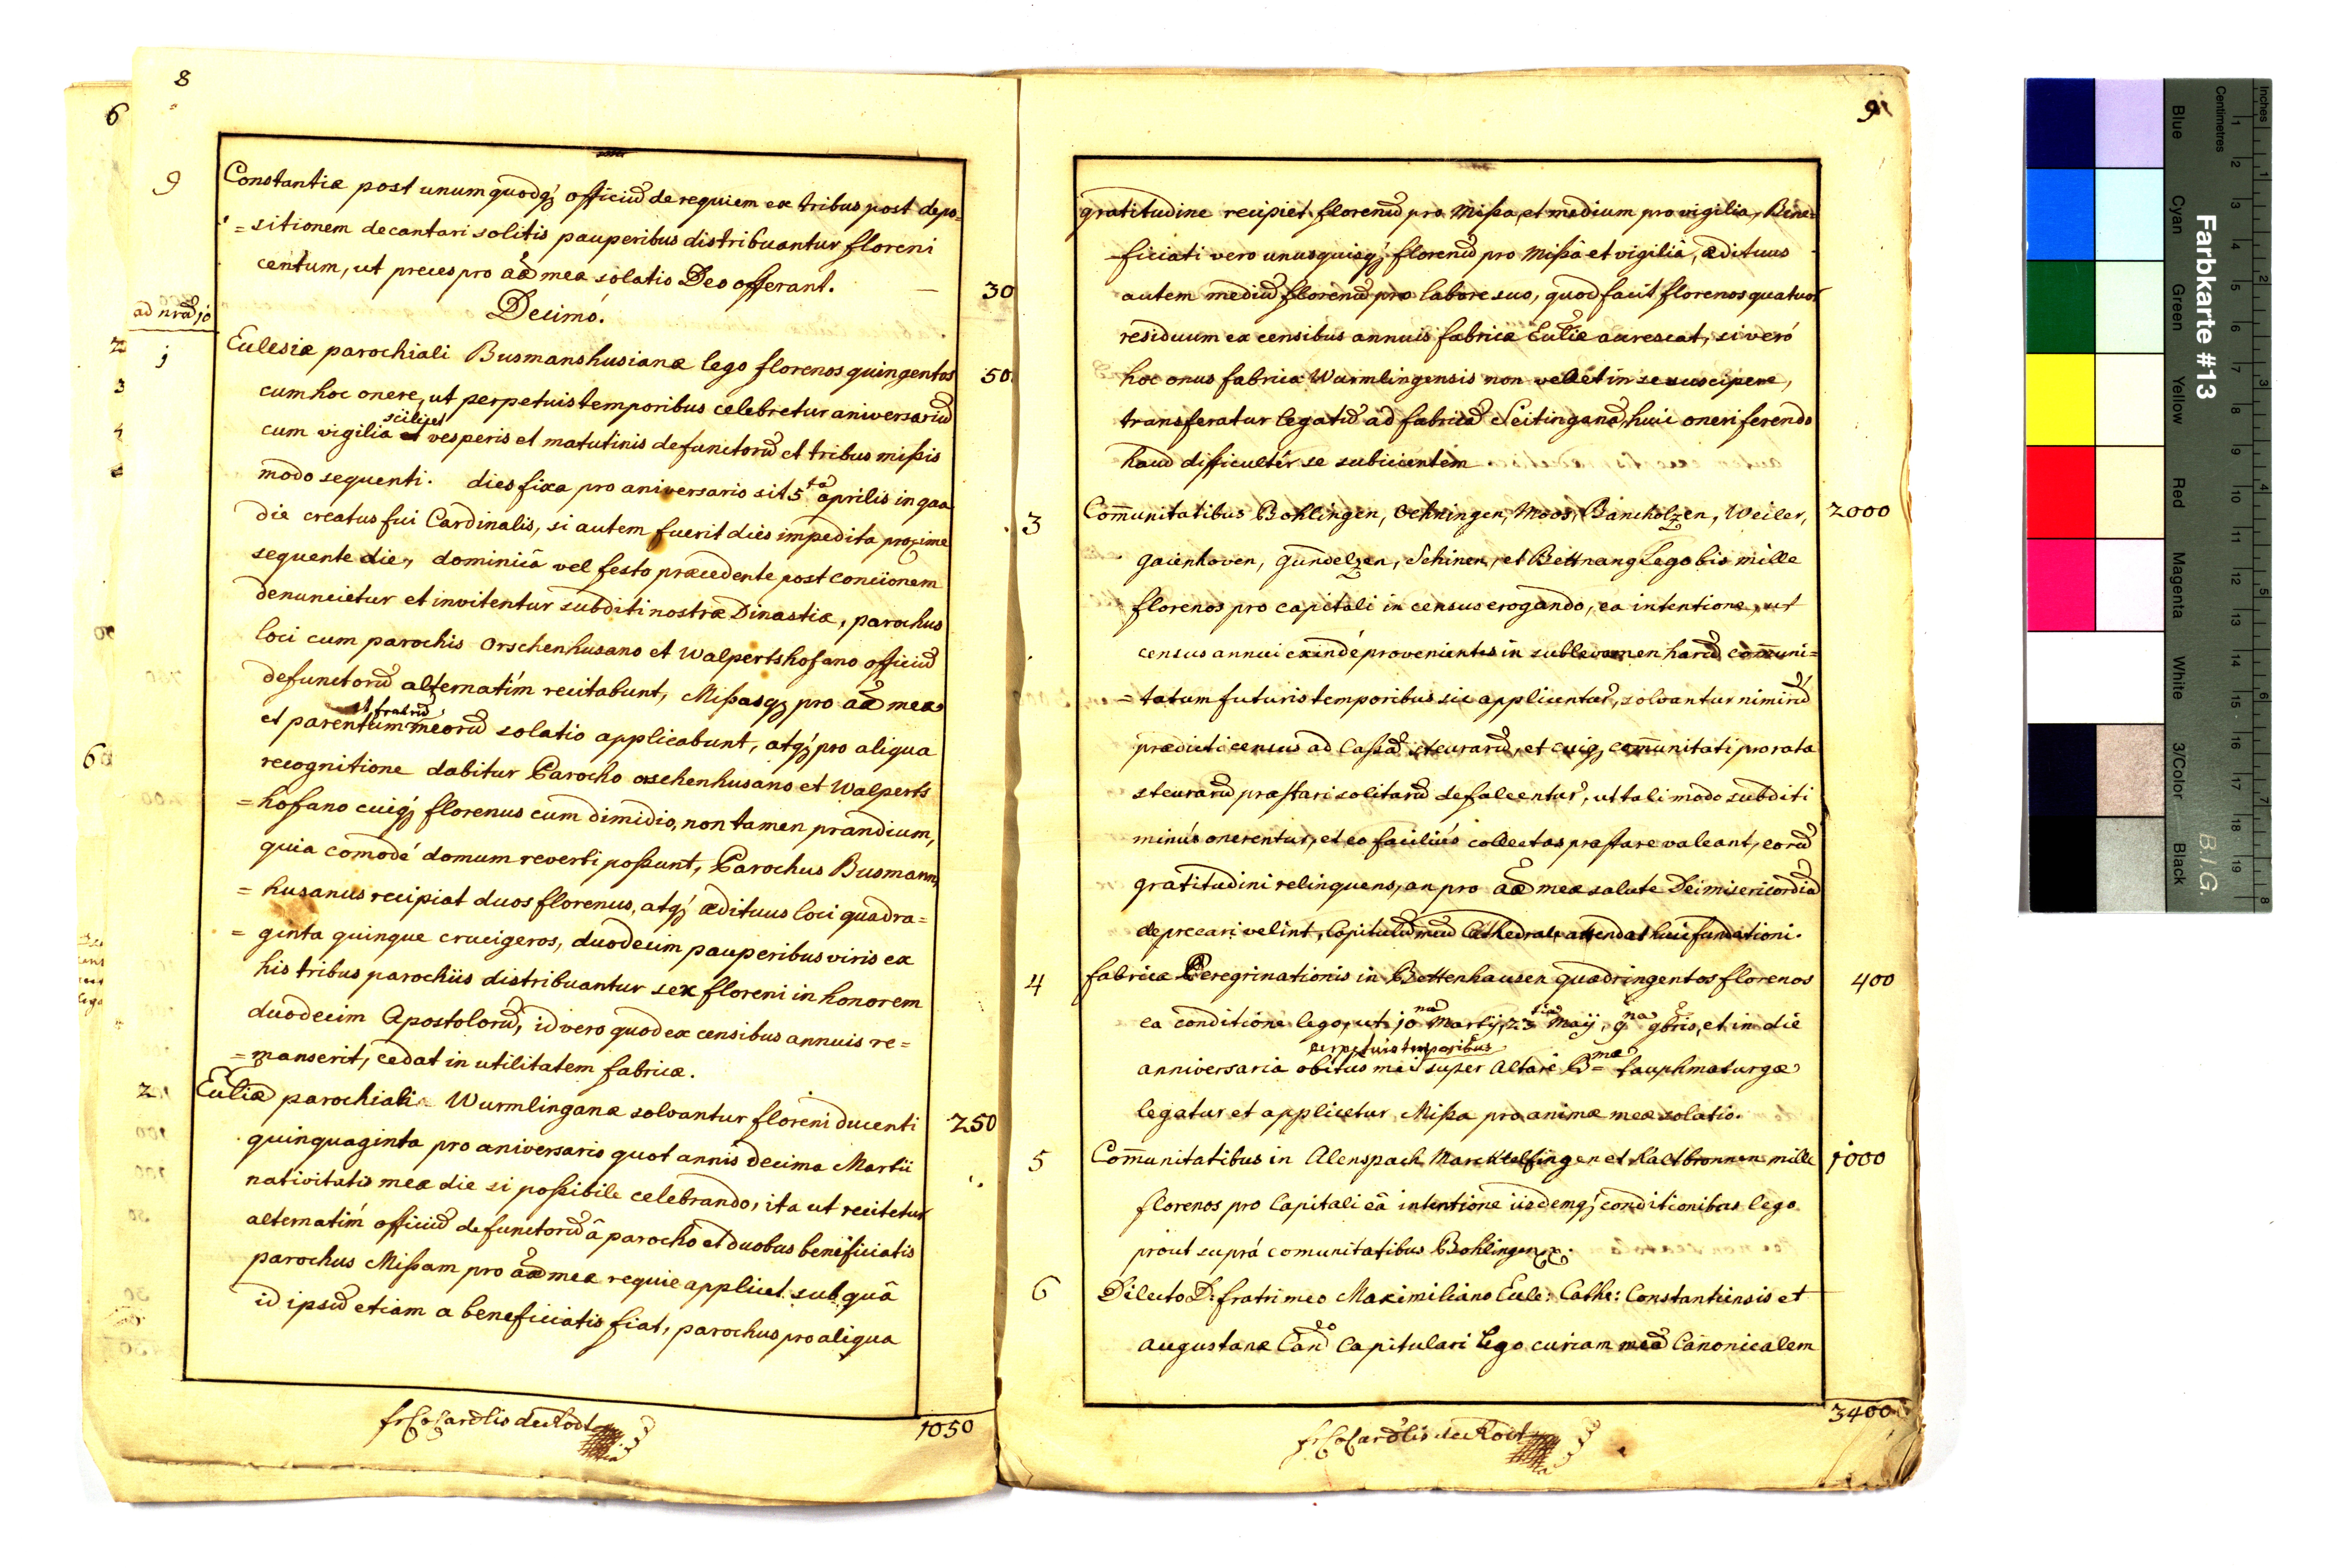 8
6
9
Constantiæ post unumquodq; officiū de requiem ex tribus post depo=
=sitionem decantari solitis pauperibus distribuantur floreni
centum, ut preces pro aāe mea solatio Deo offerant.
30
ad nrād 10
Decimó.
2
1
Eclesiæ parochiali Busmanshusianæ lego florenos quingentos
50
3
cum hoc onere, ut perpetuis temporibus celebretur aniversariū
scilicet
4
cum vigilia et vesperis et matutinis defunctorū et tribus missis
modo sequenti. dies fixa pro aniversario sit 5ta aprilis in qua
die creatus fui Cardinalis, si autem fuerit dies impedita proxime
sequente die, dominicâ vel festo præcedente post concionem
denuncietur et invitentur subditi nostræ Dinastiæ, parochus
loci cum parochis Orschenhusano et Walpertshofano officiū
defunctorū alternatím recitabunt, Missasq; pro aāe mea
et fratrū
et parentum meorū solatio applicabunt, atq; pro aliqua
6
recognitione dabitur Parocho orschenhusano et Walperts
=hofano cuiq; florenus cum dimidio, non tamen prandium,
quia comodé domum reverti possunt, Parochus Busmann
=husanus recipiat duos florenus, atq; ædituus loci quadra=
=ginta quinque crucigeros, duodecim pauperibus viris ex
his tribus parochiis distribuantur sex floreni in honorem
duodecim Apostolorū, id vero quod ex censibus annuis re=
=manserit, cedat in utilitatem fabricæ.
2
Ecliæ parochiali Wurmlinganæ solvantur floreni ducenti
250
quinquaginta pro aniversario quot annis decima Martii
nativitatis meæ die si possibile celebrando, ita ut recitetur
alternatím officiū defunctorū â parocho et duobus beneficiatis
parochus Missam pro aāe meæ requie applicet sub quâ
id ipsū etiam a beneficiatis fiat, parochus pro aliqua
fr Co Cardlis de Rodt
1050
9
gratitudine recipiet florenū pro Missa, et medium pro vigilia, Bene=
ficiati vero unusquisq; florenū pro Missâ et vigiliâ, ædituus
autem mediū florenū pro labore suo, quod facit florenos quatuor
residuum ex censibus annuis fabricæ Ecliæ accrescat, si veró
hoc onus fabrica Wurmlingensis non vellet in se suscipere,
transferatur legatū ad fabricā Seitinganā, huic oneri ferendo
haud difficultér se subiicientem
3
Comunitatibus Bohlingen, Oehningen, Moos, Banckolzen, Weiler,
2000
gaienhoven, gundelzen, Schinen, et Bettnang lego bis mille
florenos pro capitali in census erogando, ea intentione, ut
census annui exindé provenientes in sublevamen harū comuni=
=tatum futuris temporibus sic applicentur, solvantur nimirū
prædicti census ad Cassā steurarū, et cuiq; comunitati pro rata
steurarū præstari solitarū defalcentur, ut tali modo subditi
minús onerentur, et eo faciliús collectas præstare valeant, eorū
gratitudini relinquens, an pro aāe meæ salute Dei misericordiā
deprecari velint, Capitulū meū Cathedrale attendat huic fundationi.
4
fabricæ Peregrinationis in Bettenhausen quadringentos florenos
400
ea conditione lego, ut 10na Martij, 23tia Maij, 9na 9bris, et in die
perpetuis temporibus
anniversaria obitus mei super Altare B=mæ tauphmaturgæ
legatur et applicetur Missa pro animæ meæ solatio.
5
Comunitatibus in Alenspach Marckhelfingen et Kaltbronnen mille
1000
florenos pro Capitali eâ intentione iisdemq; conditionibus lego
prout suprá comunitatibus Bohlingen x.
6
Dilecto D: fratri meo Maximiliano Eccle: Cathe: Constantiensis et
augustanæ Cand Capitulari lego curiam meā Canonicalem
fr Co Cardlis de Rodt
3400
Farbkarte #13
B.I.G.
Inches
Centimetres
1
2
3
4
5
6
7
8
9
10
11
12
13
14
15
16
17
18
19
1
2
3
4
5
6
7
8
Blue
Cyan
Green
Yellow
Red
Magenta
White
3/Color
Black